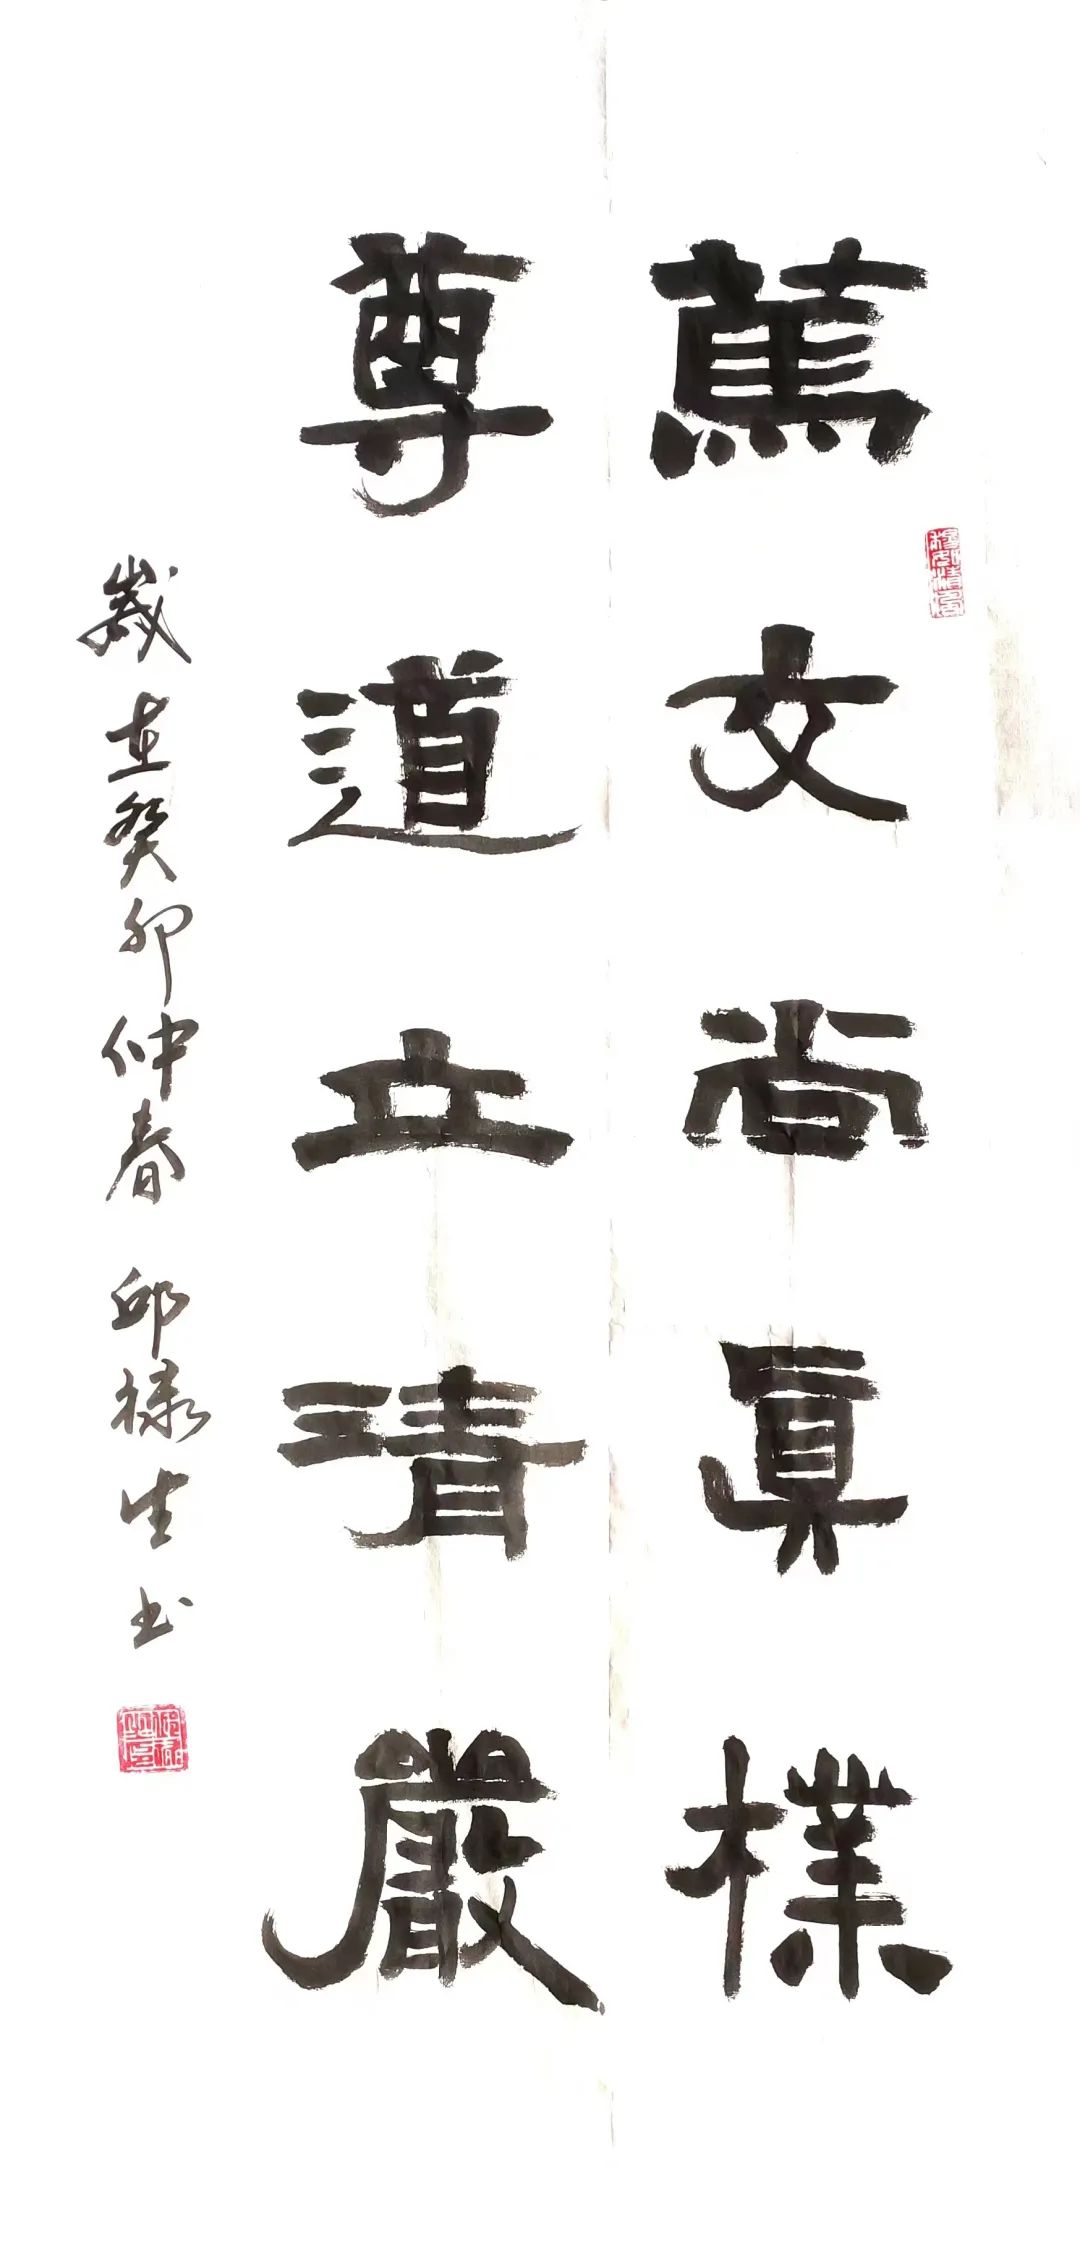 篤文尚眞樸
尊道立清嚴
歲在癸卯仲春 邱祿生书